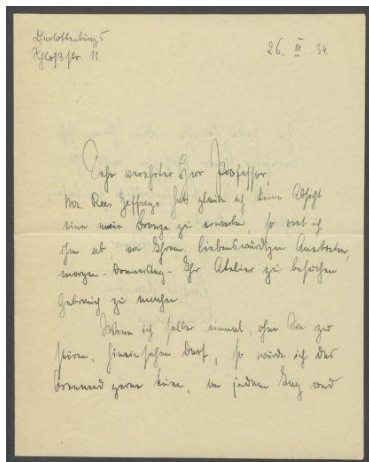 Charlottenburg 5
Schloßstr. 11.
26. IX. 34.
Sehr verehrter Herr Professor,
Mr. Rees Jeffreys hat glaube ich keine Absicht
eine neue Bronze zu erwerben, so riet ich
ihm ab von Ihrem liebenswürdigen Anerbieten,
morgen - Donnerstag - Ihr Atelier zu besuchen
Gebrauch zu machen.
Wenn ich selber einmal, ohne Sie zu
stören, hineinsehen darf, so würde ich das
brennend gerne tun, an jedem Tag und